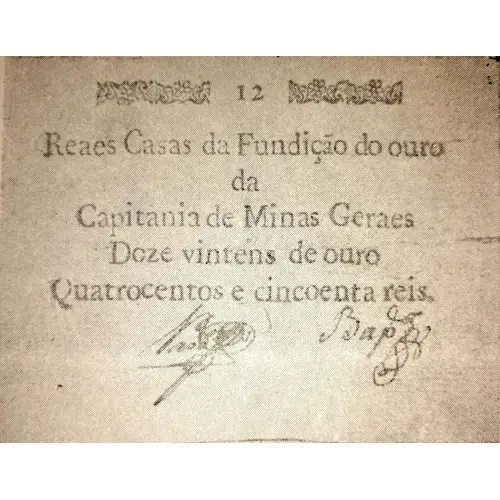 12
Reaes Casas da Fundição do ouro
da
Capitania de Minas Geraes
Doze vintens de ouro
Quatrocentos e cincoenta reis,